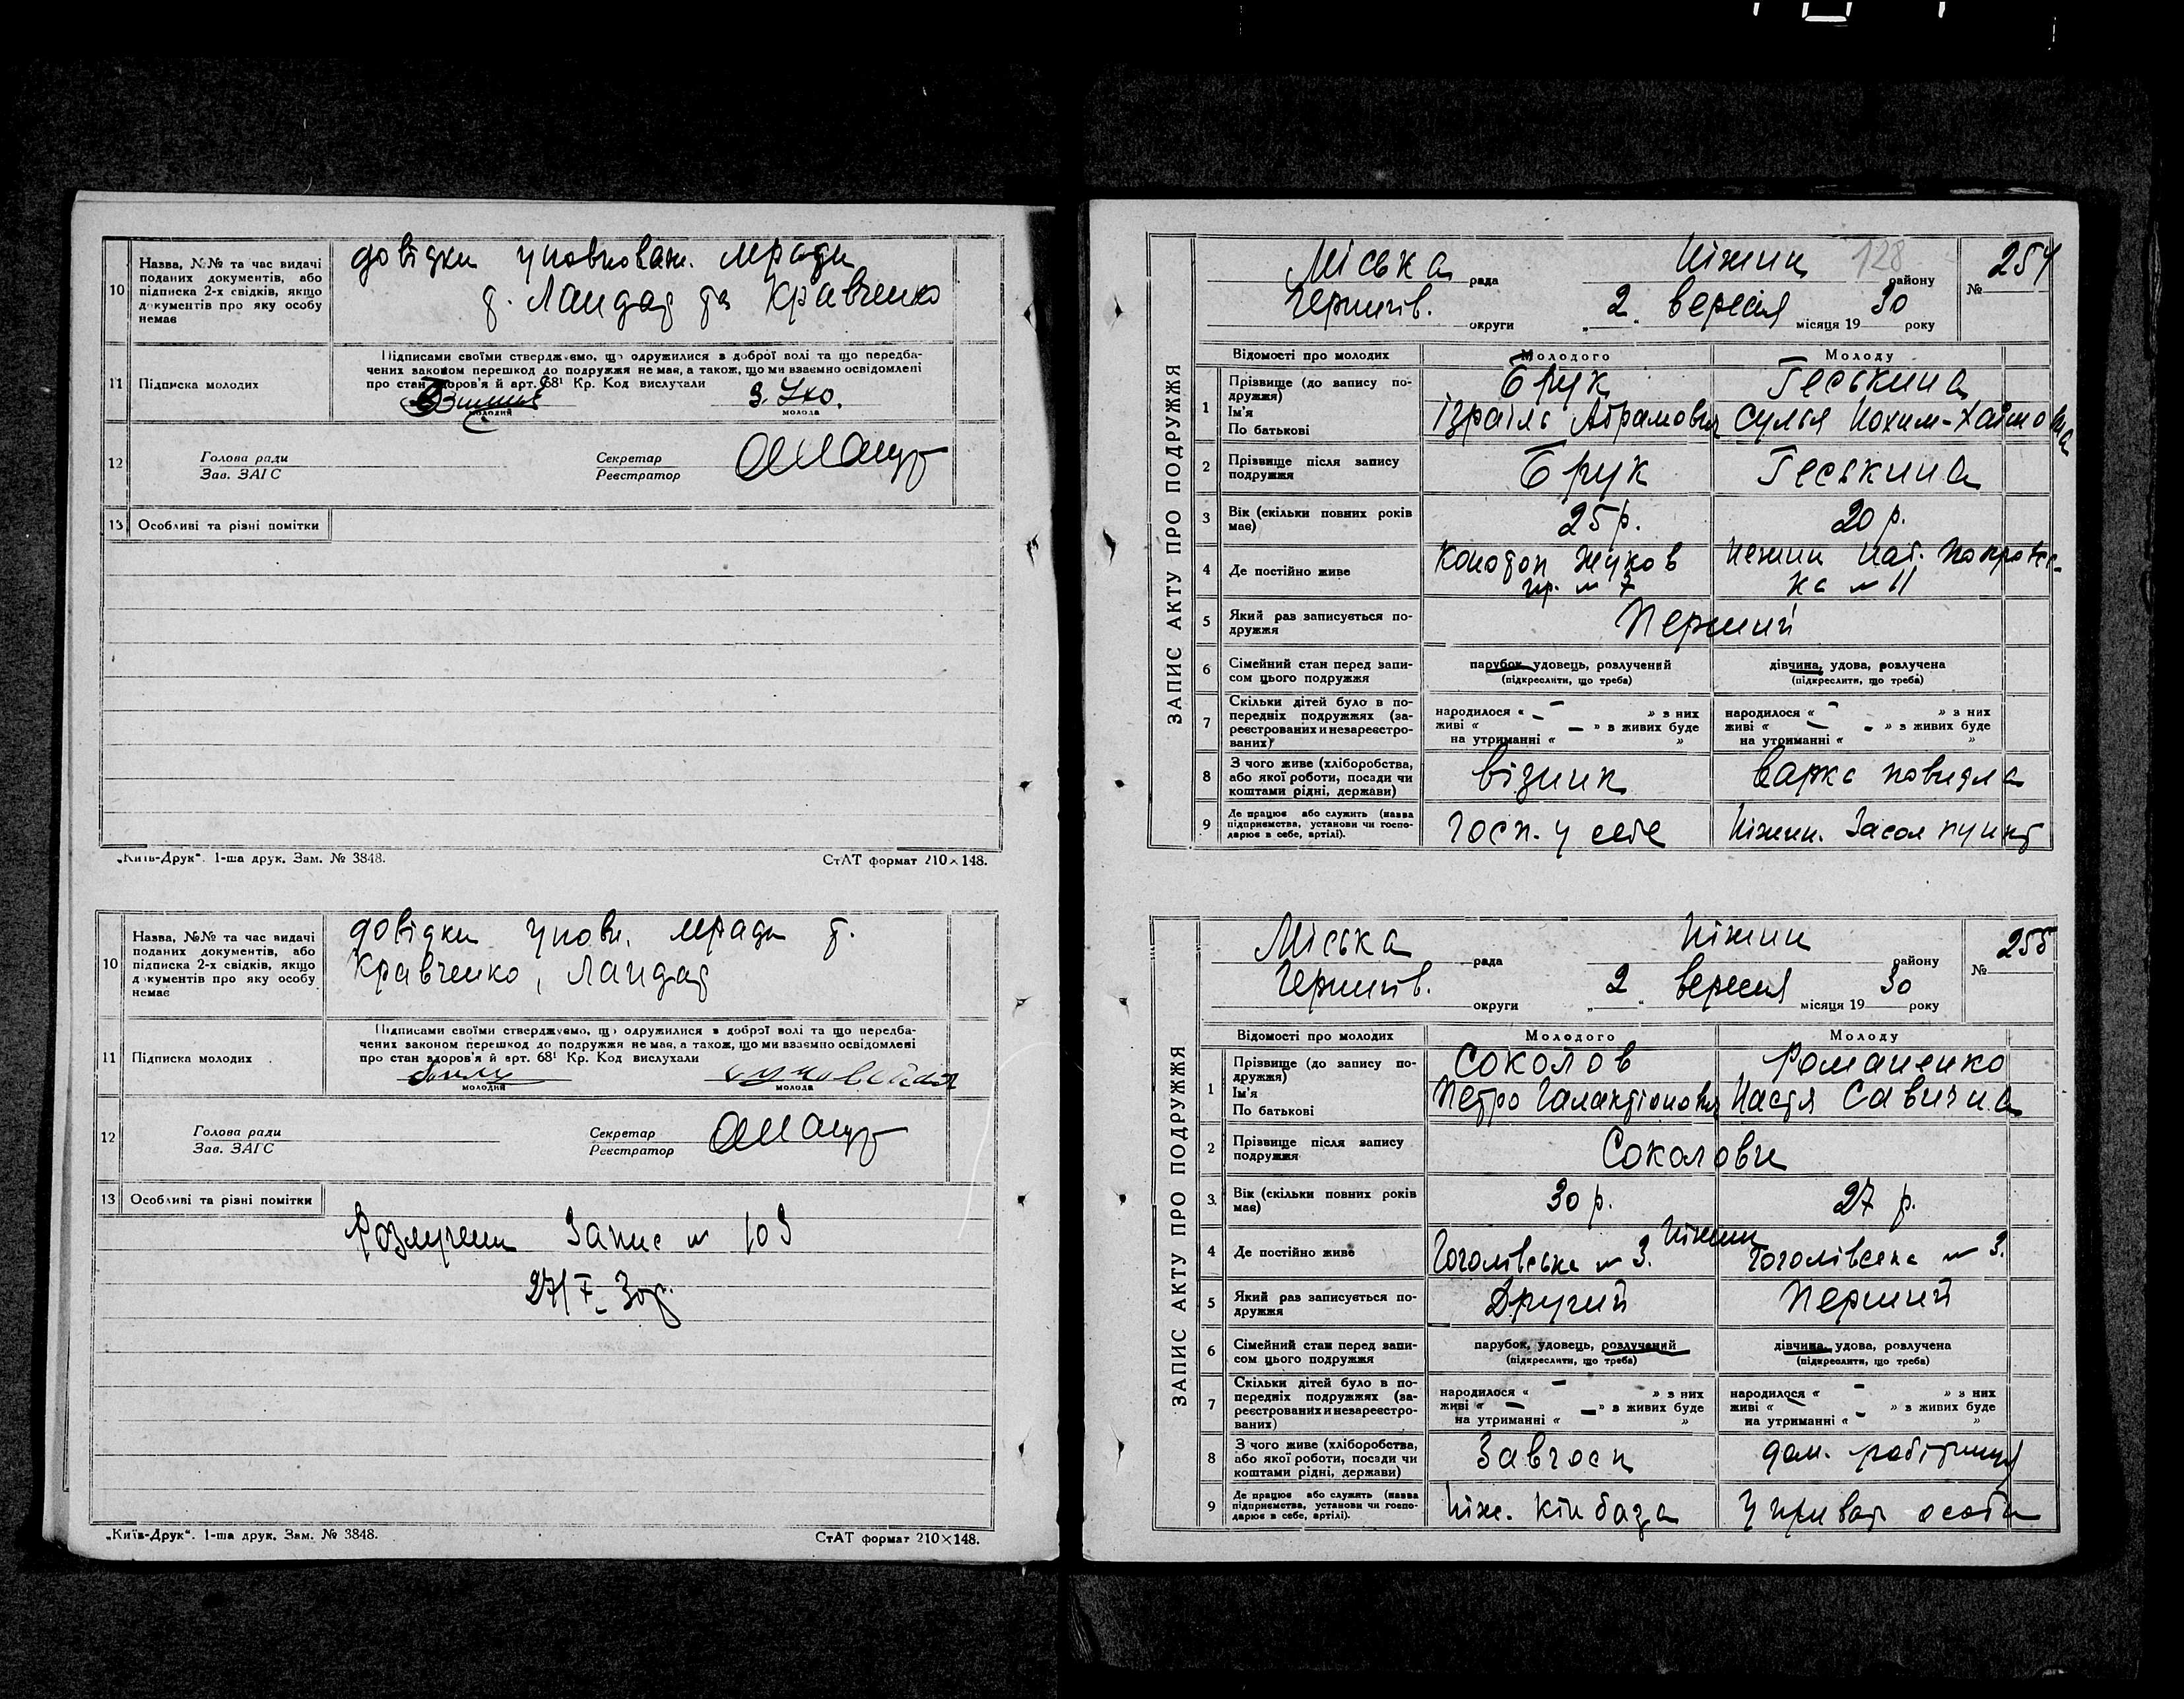 10
Назва, №№ та час видачі
поданих документів, або
підписка 2-х свідків, якщо
документів про яку особу
немає
довідки уповноваж. мради
т. Ландат та Кравченко
11
Підписка молодих
Підписами своїми стверджуємо, що одружилися з доброї волі та що передба-
чених законом перешкод до подружжя не має, а також, що ми взаємно освідомлені
про стан здоров'я й арт. 68¹ Кр. Код вислухали
молодий
молода
12
Голова ради
Зав. ЗАГС
Секретар
Реєстратор
13
Особливі та різні помітки
„Київ-Друк“. 1-ша друк. Зам. № 3848.
СтАТ формат 210×148.
10
Назва, №№ та час видачі
поданих документів, або
підписка 2-х свідків, якщо
документів про яку особу
немає
довідки уповн. мради т.
Кравченко, Ландат
11
Підписка молодих
Підписами своїми стверджуємо, що одружилися з доброї волі та що передба-
чених законом перешкод до подружжя не має, а також, що ми взаємно освідомлені
про стан здоров'я й арт. 68¹ Кр. Код вислухали
молодий
молода
12
Голова ради
Зав. ЗАГС
Секретар
Реєстратор
13
Особливі та різні помітки
Розлучени Запис № 103
„Київ-Друк“. 1-ша друк. Зам. № 3848.
СтАТ формат 210×148.
ЗАПИС АКТУ ПРО ПОДРУЖЖЯ
Міська рада Ніжин району 128
№ 254
Чернигів. округи „2“ вересня місяця 1930 року
Відомості про молодих
Молодого
Молоду
1
Прізвище (до запису по-
дружжя)
Ім'я
По батькові
Брук
Ізраїль Абрамович
Геськина
Сулья Нохим-Хаімовна
2
Прізвище після запису
подружжя
Брук
Геськина
3
Вік (скільки повних років
має)
25 р.
20 р.
4
Де постійно живе
Конотоп Жуков
пр. № 7
Нежин наб. Покровсь-
ка № 11
5
Який раз записується по-
дружжя
Перший
6
Сімейний стан перед запи-
сом цього подружжя
парубок, удовець, розлучений
(підкреслити, що треба)
дівчина, удова, розлучена
(підкреслити, що треба)
7
Скільки дітей було в по-
передніх подружжях (за-
реєстрованих и незареєстро-
ваних)
народилося « – » з них
живі « – » з живих буде
на утриманні « »
народилося « – » з них
живі « – » з живих буде
на утриманні « »
8
З чого живе (хліборобства,
або якої роботи, посади чи
коштами рідні, держави)
візник
варка повидла
9
Де працює або служить (назва
підприємства, установи чи госпо-
дарює в себе, артілі).
госп. у себе
Ніжин. Засол пункт
ЗАПИС АКТУ ПРО ПОДРУЖЖЯ
Міська рада Ніжин району
№ 255
Чернигів. округи „2“ вересня місяця 1930 року
Відомості про молодих
Молодого
Молоду
1
Прізвище (до запису по-
дружжя)
Ім'я
По батькові
Соколов
Петро Галактіонович
Романенко
Настя Савична
2
Прізвище після запису
подружжя
Соколови
3.
Вік (скільки повних років
має)
30 р.
27 р.
4
Де постійно живе
Ніжин
Гоголівська № 3.
Гоголівська № 3.
5
Який раз записується по-
дружжя
Другий
Перший
6
Сімейний стан перед запи-
сом цього подружжя
парубок, удовець, розлучений
(підкреслити, що треба)
дівчина, удова, розлучена
(підкреслити, що треба)
7
Скільки дітей було в по-
передніх подружжях (за-
реєстрованих и незареєстро-
ваних)
народилося « – » з них
живі « – » з живих буде
на утриманні « »
народилося « – » з них
живі « – » з живих буде
на утриманні « »
8
З чого живе (хліборобства,
або якої роботи, посади чи
коштами рідні, держави)
Завгосп
дом. робітниця
9
Де працює або служить (назва
підприємства, установи чи госпо-
дарює в себе, артілі).
Ніж. Кін база
У приват особи